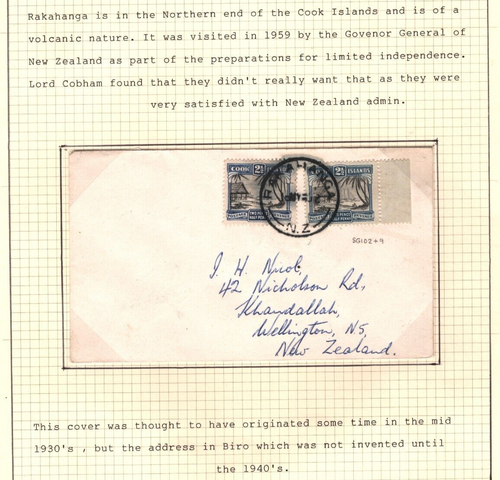 Rakahanga is in the Northern end of the Cook Islands and is of a
volcanic nature. It was visited in 1959 by the Govenor General of
New Zealand as part of the preparations for limited independence.
Lord Cobham found that they didn't really want that as they were
very satisfied with New Zealand admin.
COOK 2½ 2½ ISLANDS
RAKAHANGA
N.Z
SG102+9
J. H. Nicol,
42 Nicholson Rd,
Khandallah,
Wellington, N5,
New Zealand.
This cover was thought to have originated some time in the mid
1930's , but the address in Biro which was not invented until
the 1940's.